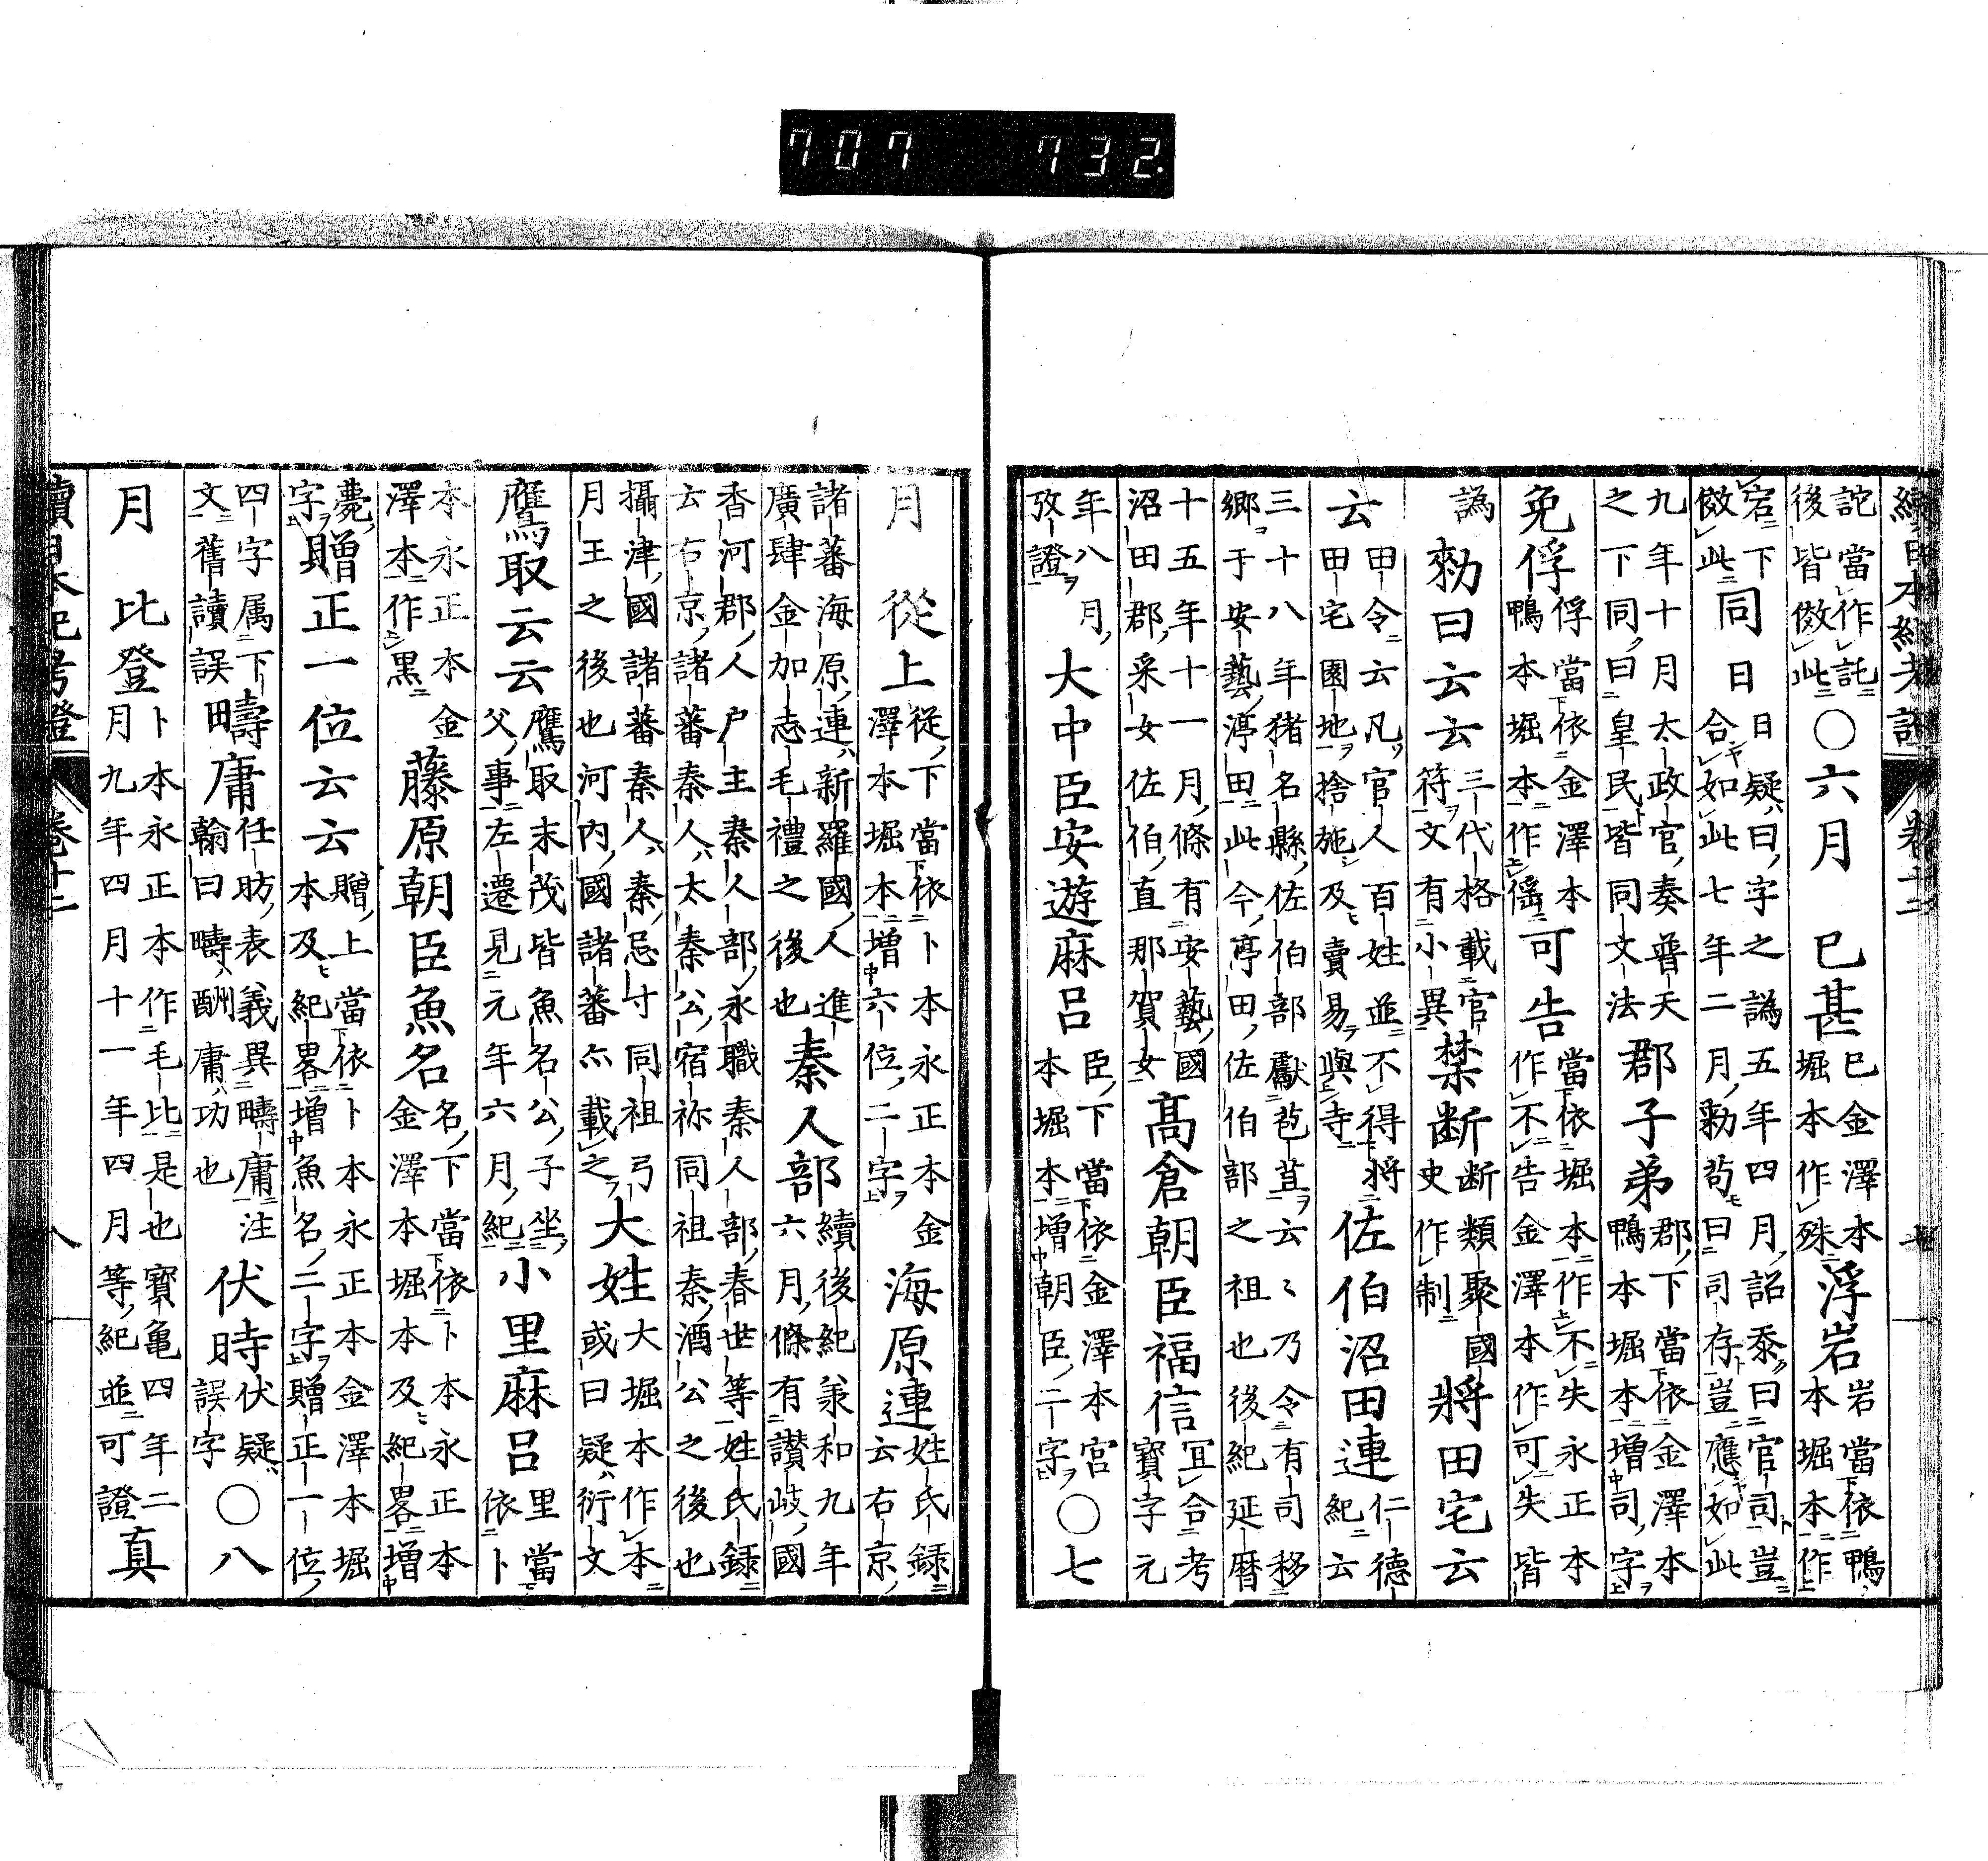 續日本紀考證 卷十二 七
詑當作託後皆傚此○六月 已甚已金澤本堀本作殊浮岩岩當依鴨本堀本作
宕下傚此同日日疑曰字之譌五年四月詔泰曰官司豈合如此七年二月勅茍曰司存豈應如此
九年十月太政官奏普天之下同曰皇民皆同文法郡子弟郡下當依金澤本鴨本堀本增司字
免俘俘當依金澤本鴨本堀本作傜可告當依堀本作不失永正本作不告金澤本作可失皆
譌勅曰云云三代格載官符文有小異禁断断類聚國史作制將田宅云
云田令云凡官人百姓並不得將田宅園地捨施及賣易與寺佐伯沼田連仁德紀云
三十八年猪名縣佐伯部獻苞苴云〻乃令有司移鄉于安藝渟田此今亭田佐伯部之祖也後紀延暦
十五年十一月條有安藝國沼田郡采女佐伯直那賀女高倉朝臣福信宜合考寶字元
年八月攷證大中臣安遊麻呂臣下當依金澤本宮本堀本增朝臣二字○七
月 從上從下當依卜本永正本金澤本堀本增六位二字海原連姓氏録云右京
諸蕃海原連新羅國人進廣肆金加志毛禮之後也秦人部續後紀兼和九年六月條有讃岐國
香河郡人户主秦人部永職秦人部春世等姓氏録云右京諸蕃秦人太秦公宿祢同祖秦酒公之後也
攝津國諸蕃秦人秦忌寸同祖弓月王之後也河内國諸蕃亦載之大姓大堀本作本或曰疑衍文
鷹取云云鷹取末茂皆魚名公子坐父事左遷見元年六月紀小里麻呂里當依卜
本永正本金澤本作黒藤原朝臣魚名名下當依卜本永正本金澤本堀本及紀畧增
薨字贈正一位云云贈上當依卜本永正本金澤本堀本及紀畧增魚名二字贈正一位
四字属下文舊讀誤疇庸任昉表義異疇庸注翰曰疇酬庸功也伏時伏疑誤字○八
月 比登卜本永正本作毛比是也寶亀四年二月九年四月十一年四月等紀並可證真
續日本紀考證 卷十二 八
707 732.